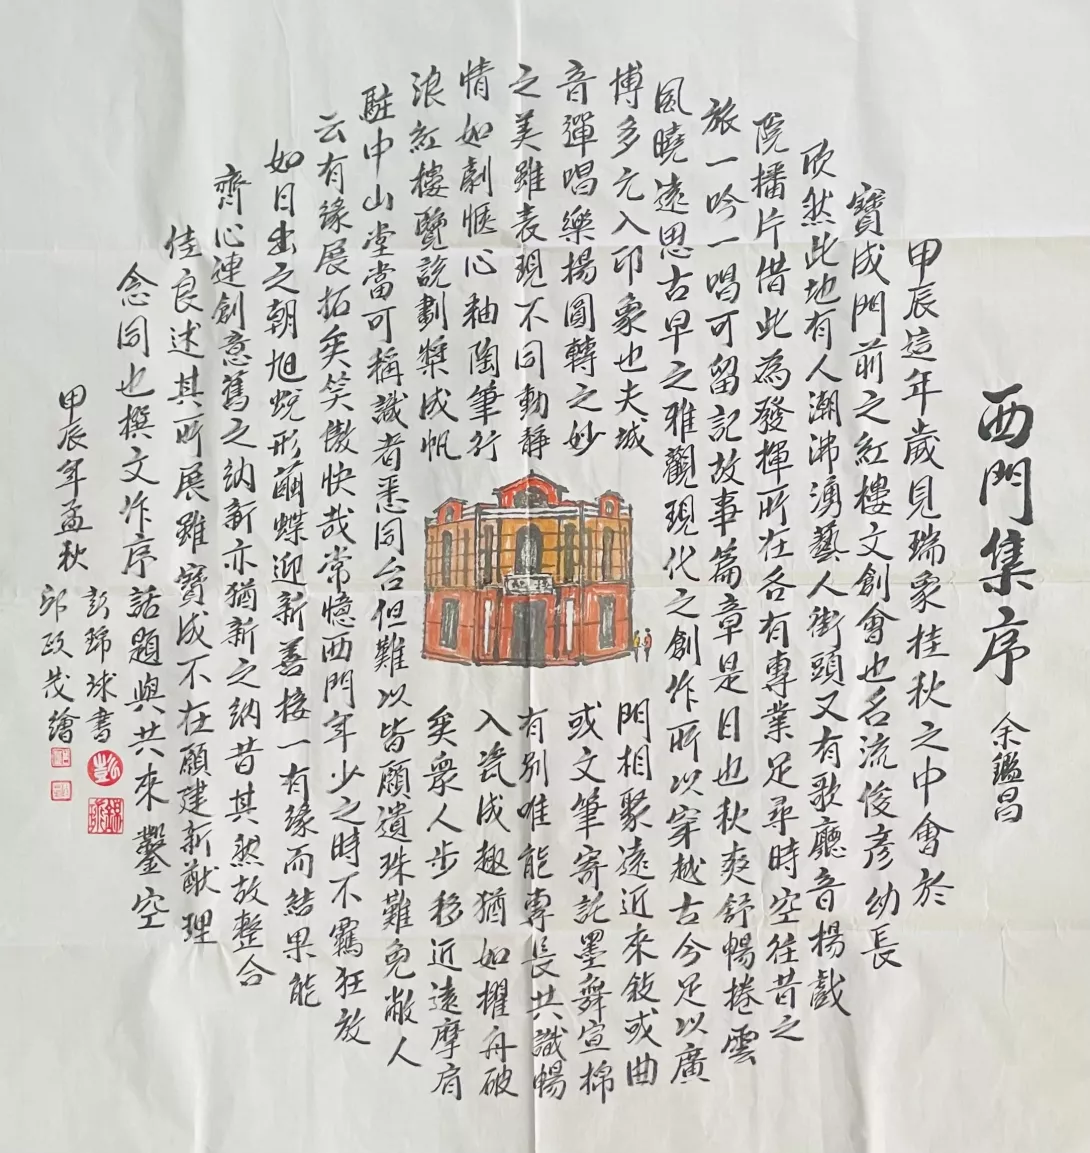 西門集序 余鑑昌
甲辰這年歲見瑞象桂秋之中會於
寶成門前之紅樓文創會也名流俊彥幼長
欣然此地有人潮沸湧藝人街頭又有歌廳音揚戲
院播片借此為發揮所在各有專業足尋時空往昔之
旅一吟一唱可留記故事篇章是日也秋爽舒暢捲雲
風曉遠思古早之雅觀現代之創作所以穿越古今足以廣
博多元入印象也夫城
門相聚遠近來敘或曲
音彈唱樂揚圓轉之妙
或文筆寄託墨舞宣棉
之美雖表現不同動靜
有別唯能專長共識暢
情如劇愜心釉陶筆行
入瓷成趣猶如櫂舟破
浪紅樓覽說劃槳成帆
矣眾人步移近遠摩肩
駐中山堂當可稱識者悉同台但難以皆顧遺珠難免敝人
云有緣展拓矣笑傲快哉常憶西門年少之時不羈狂放
如日出之朝旭蛻形繭蝶迎新善接一有緣而結果能
齊心連創意舊之納新亦猶新之納昔其然故整合
佳良述其所展雖寶成不在願建新猷理
念同也撰文作序話題與共來鑿空
甲辰年孟秋
彭錦球書
邱政茂繪